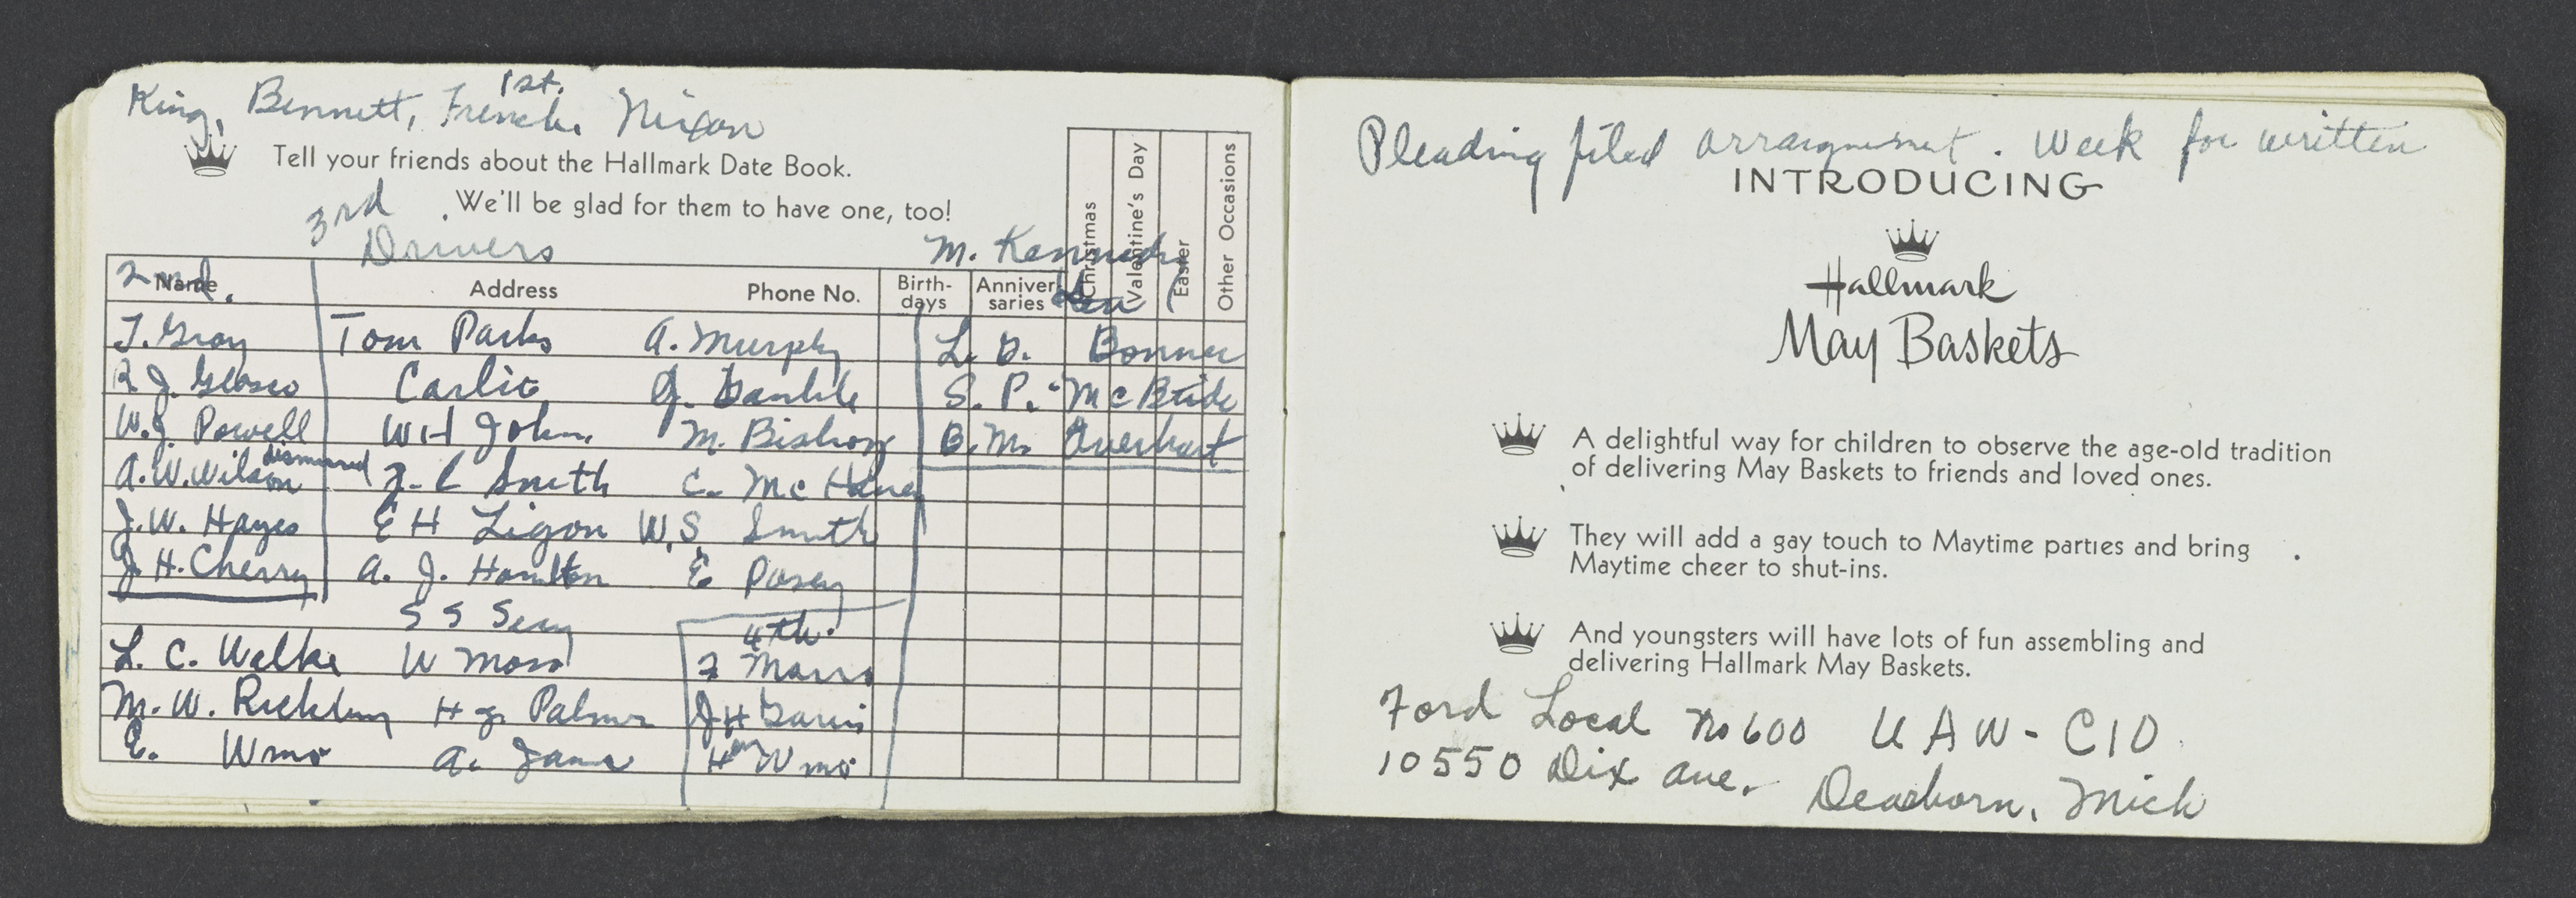 1st.
King, Bennett, French. Nixon
Tell your friends about the Hallmark Date Book.
3rd We'll be glad for them to have one, too!
Drivers M. Kennedy
2nd. Name Address Phone No. Birth-days Anniver-saries Christmas Valentine's Day Easter Other Occasions
T. Gray Tom Parks A. Murphy L. B. Bonner
R. J. Glasco Carlie G. S. P. McBride
W. J. Powell W H John. M. Bishop B. M. Averhart
dismissed
A. W. Wilson F. L Smith C. McHaney
J. W. Hayes E H Ligon W. S Smith
J. H. Cherry A. J. Hamilton E Posey
S S Seay 4th.
L. C. Walker W Moss F Morris
M. W. H J. Palmer J H Garris
E. Wms A. James H Wms
Pleading filed arraignment. Week for written
INTRODUCING
Hallmark
May Baskets
A delightful way for children to observe the age-old tradition
of delivering May Baskets to friends and loved ones.
They will add a gay touch to Maytime parties and bring
Maytime cheer to shut-ins.
And youngsters will have lots of fun assembling and
delivering Hallmark May Baskets.
Ford Local No 600 UAW-CIO.
10550 Dix Ave. Dearborn, Mich